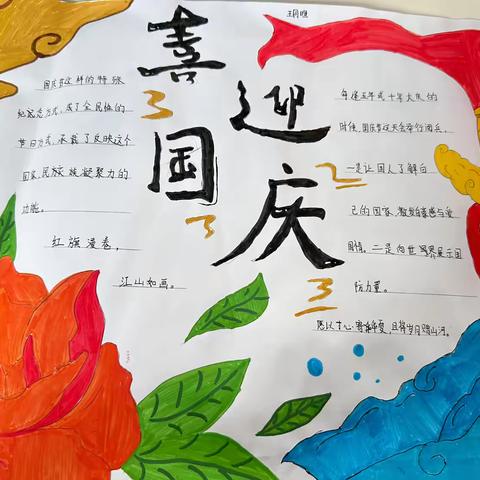 喜迎
国庆
国庆节这样的特殊
纪念方式，成了全民性的
节日方式，承载了反映这个
国家，民族，凝聚力的
功能。
红旗漫卷，
江山如画。
每逢五年或十年大庆的
时候，国庆节这天会举行阅兵，
一是让国人了解自
己的国家，激发自豪感与爱
国情。二是向世界展示国
防力量。
愿以寸心寄华夏，且将岁月赠山河。